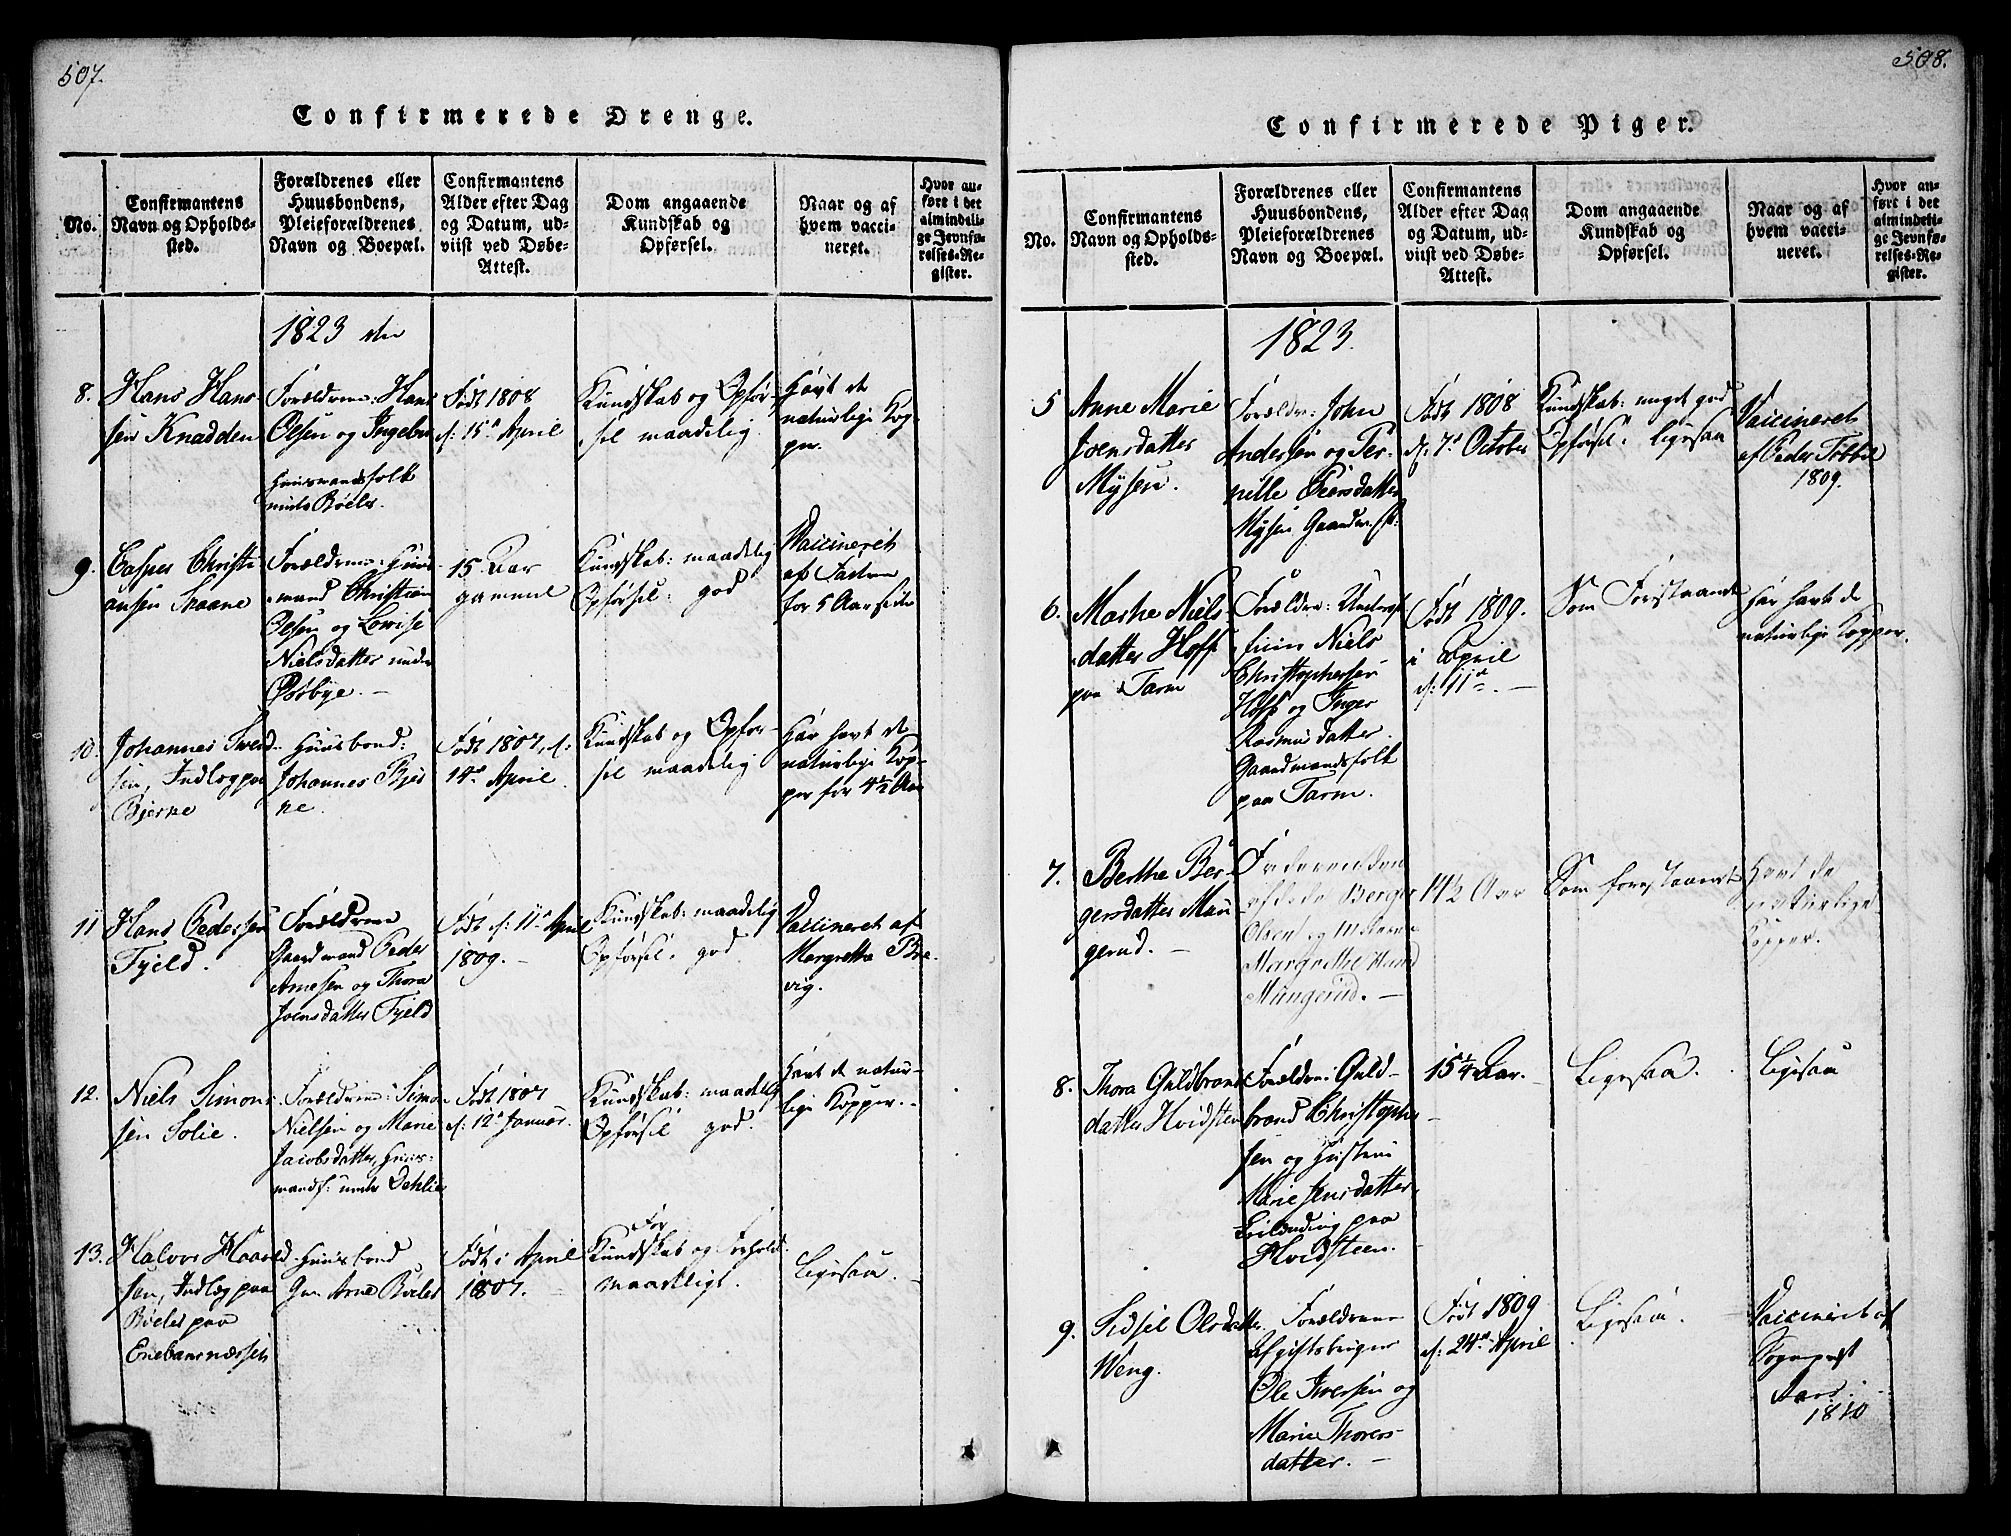 507.
Confirmerede Drenge.
No.
Confirmantens
Navn og Opholds-
sted.
Forældrenes eller
Huusbondens,
Pleieforældrenes
Navn og Boepæl.
Confirmantens
Alder efter Dag
og Datum, ud-
viist ved Døbe-
Attest.
Dom angaaende
Kundskab og
Opførsel.
Naar og af
hvem vacci-
neret.
Hvor an-
ført i det
almindeli-
ge Jevnfø-
relses-Re-
gister.
1823 den
8.
Hans Han-
sen Knadden
Forældrene: Hans
Olsen og Ingebor
Huusmandsfolk
under Bøeler.
Født 1808
d: 15de April
Kundskab og Opfør-
sel maadelig
Havt de
naturlige Kop-
per.
9.
Casper Christi
ansen Skaane
Forældrene: Huus-
mand Christian
Olsen og Lovise
Nielsdatter under
Østbye.
15. Aar
gammel
Kundskab: maadelig
Opførsel: god
Vaccineret
af
for 5 Aar siden
10.
Johannes Svend-
sen, Indlæg paa
Bjerke
Huusbond:
Johannes Bjer
ke.
Født 1807, d:
14de April
Kundskab og Opfør-
sel maadelig
Har havt de
naturlige Kop-
per for 4½ Aar
11
Hans Pedersen
Fjeld.
Forældrene
Gaardmand Peder
Arnesen og Thora
Joensdatter Fjeld
Født d: 11te April
1809.
Kundskab: maadelig
Opførsel: god.
Vaccineret af
Margrethe Bre-
vig.
12.
Niels Simon-
sen Solie.
Forældrene: Simon
Nielsen og Marie
Jacobsdatter, Huus-
mandsf: under Dehlie
Født 1807
d: 12te Januar.
Kundskab: maadelig
Opførsel god.
Havt de natur-
lige Kopper.
13.
Halvor Haavold-
sen, Indlæg paa
Bøeler paa
Enebaknæsset
Huusbond
Arne Bøeler
Født i April
1807.
For
Kundskab og Forhold.
maadeligt.
Ligesaa.
508.
Confirmerede Piger.
No.
Confirmantens
Navn og Opholds-
sted.
Forældrenes eller
Huusbondens,
Pleieforældrenes
Navn og Boepæl.
Confirmantens
Alder efter Dag
og Datum, ud-
viist ved Døbe-
Attest.
Dom angaaende
Kundskab og
Opførsel.
Naar og af
hvem vacci-
neret.
Hvor an-
ført i det
almindeli-
ge Jevnfø-
relses-Re-
gister.
1823.
5
Anne Marie
Joensdatter
Mysen.
Forældre: John
Andersen og Per-
nille Peersdatter
Mysen Gaardm: f:
Født 1808
d: 7de October
Kundskab: meget god
Opførsel: ligesaa
Vaccineret
af Peder
1809.
6.
Marthe Niels
datter Hoff
paa Tarm
Forældre:
Niels
Christophersen
Hoff og Inger
Rasmusdatter
Gaardmandsfolk
paa Tarm.
Født 1809.
i April
d: 11te
Som Forstaaende
Har havt de
naturlige Kopper.
7.
Berthe Ber-
gersdatter Mau
gerud.
Faderen den
afdøde Berger
Olsen og Moderen
Margrethe
Mungerud.
14½ Aar
Som forestaaende
Havt de
naturlige
Kopper.
8.
Thora Guldbrands
datter Hvidsten
Forældre: Guld-
brand Christopher
sen og Hustrue
Marie Jensdatter,
paa
Hvidsteen.
15¼ Aar.
Ligesaa.
Ligesaa
9.
Sidsel Olsdatter
Weng.
Forældrene
Afgiftsbruger
Ole Iversen og
Marie Thorers-
datter.
Født 1809
d: 24de April
Ligesaa.
Vaccineret af
Sognepræst
Aars.
1810